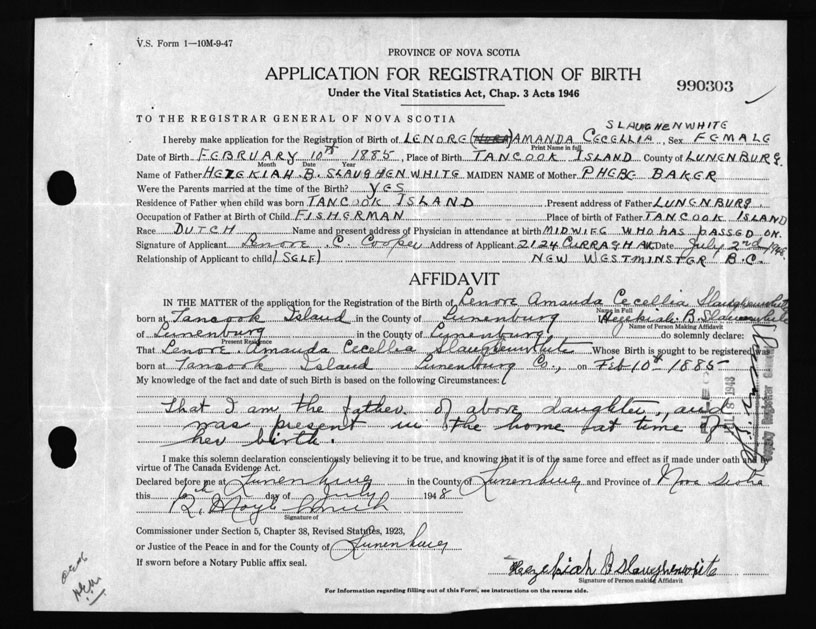 V.S. Form 1—10M-9-47
PROVINCE OF NOVA SCOTIA
APPLICATION FOR REGISTRATION OF BIRTH
990303
Under the Vital Statistics Act, Chap. 3 Acts 1946
TO THE REGISTRAR GENERAL OF NOVA SCOTIA
SLAUGHENWHITE
I hereby make application for the Registration of Birth of LENORE (NORA) AMANDA CECELLIA Sex FEMALE
Print Name in full
Date of Birth FEBRUARY 10th 1885, Place of Birth TANCOOK ISLAND County of LUNENBURG.
Month Date Year
Name of Father HEZEKIAH. B. SLAUGHENWHITE MAIDEN NAME of Mother PHEBE BAKER
Were the Parents married at the time of the Birth? YES
Residence of Father when child was born TANCOOK ISLAND Present address of Father LUNENBURG.
Occupation of Father at Birth of Child FISHERMAN Place of birth of Father TANCOOK ISLAND
Race DUTCH Name and present address of Physician in attendance at birth MIDWIFE WHO HAS PASSED ON.
Signature of Applicant Lenore. C. Cooper Address of Applicant 2124 CURRAGH AV. Date July 2nd/1948.
Relationship of Applicant to child (SELF) NEW WESTMINSTER B.C.
AFFIDAVIT
IN THE MATTER of the application for the Registration of the Birth of Lenore Amanda Cecellia Slaughenwhite
Name in Full
born at Tancook Island in the County of Lunenburg Hezekiah. B. Slauenwhite
Name of Person Making Affidavit
of Lunenburg in the County of Lunenburg, do solemnly declare:
Present Residence
That Lenore. Amanda Cecellia Slaughenwhite Whose Birth is sought to be registered was
born at Tancook Island Lunenburg Co., on Feb 10th 1885
My knowledge of the fact and date of such Birth is based on the following Circumstances:
That I am the father of above daughter, and
was present in the home at time of
her birth.
I make this solemn declaration conscientiously believing it to be true, and knowing that it is of the same force and effect as if made under oath and by
virtue of The Canada Evidence Act.
Declared before me at Lunenburg in the County of Lunenburg and Province of Nova Scotia
this 6th day of July 1948
R. Smith
Signature of
Commissioner under Section 5, Chapter 38, Revised Statutes, 1923,
or Justice of the Peace in and for the County of Lunenburg
If sworn before a Notary Public affix seal.
Hezekiah B Slaughenwhite
Signature of Person making Affidavit
For Information regarding filling out of this Form, see instructions on the reverse side.